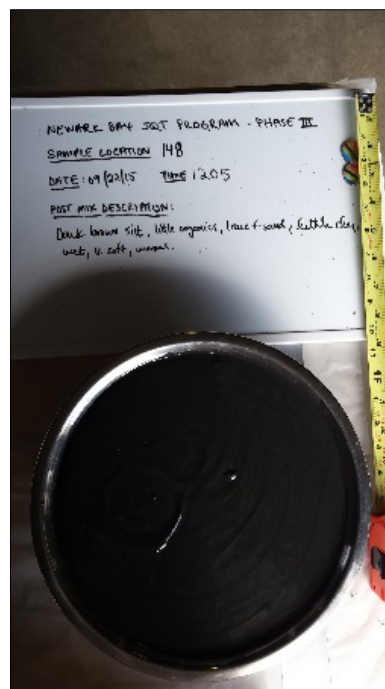 NEWARK BAY SQT PROGRAM - PHASE III
SAMPLE LOCATION 148
DATE: 09/22/15 TIME 1205
POST MIX DESCRIPTION:
Dark brown silt, little organics, trace f. sand, little clay,
wet, v. soft, worms.